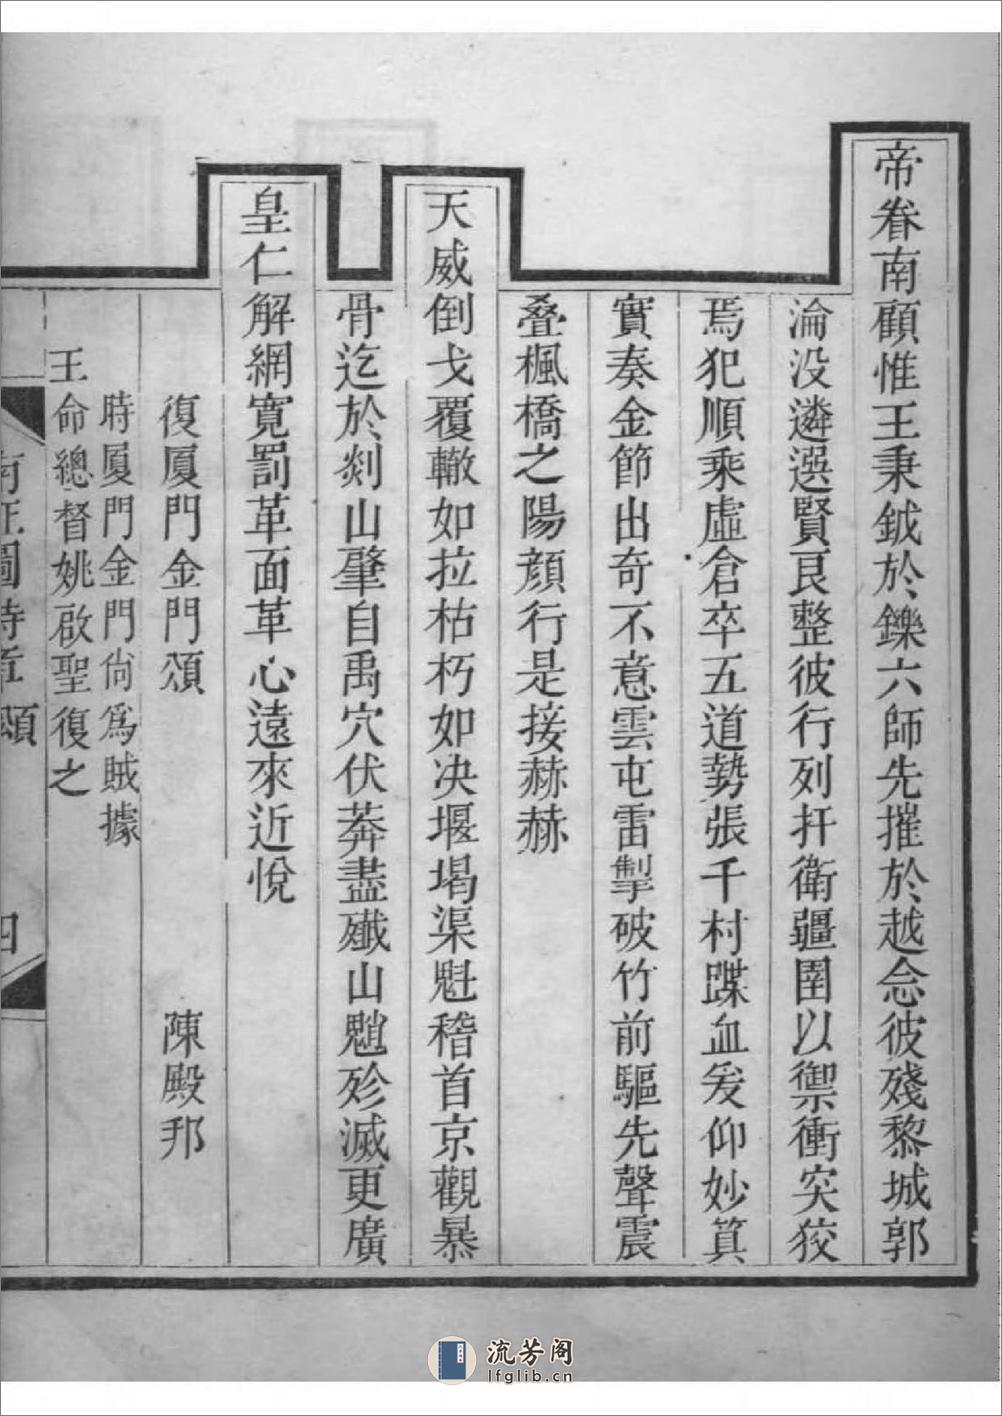 帝眷南顧惟王秉鉞於鑠六師先摧於越念彼殘黎城郭
淪没遴選賢良整彼行列扞衛疆圉以禦衝突狡
焉犯順乘虛倉卒五道勢張千村蹀血爰仰妙筭
實奏金節出奇不意雲屯雷掣破竹前驅先聲震
叠楓橋之陽顔行是接赫赫
天威倒戈覆轍如拉枯朽如决堰堨渠魁稽首京觀暴
骨迄於剡山肇自禹穴伏莽盡殱山魈殄滅更廣
皇仁解網寛罰革面革心遠來近悅
復厦門金門頌 陳殿邦
時厦門金門尙爲賊據
王命總督姚啟聖復之
頌
四
流芳阁
lfglib.cn